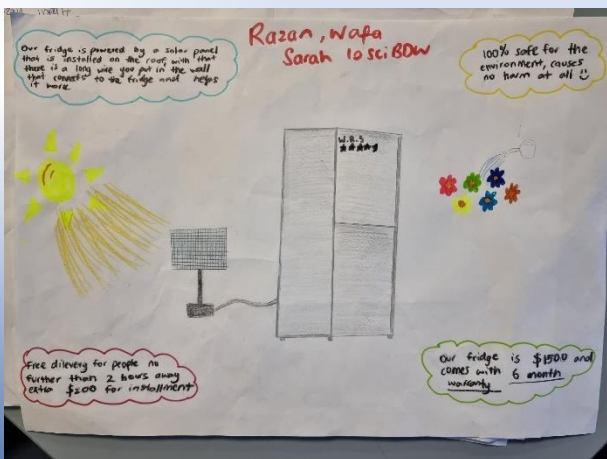 Razan, Wafa
Sarah 10SciBDW
Our fridge is powered by a solar panel
that is installed on the roof, with that
there is a long wire you put in the wall
that connects to the fridge and helps
it work.
100% safe for the
environment, causes
no harm at all
W.R.S
Free dilevery for people no
further than 2 hours away
extra $200 for installment
Our fridge is $1500 and
comes with 6 month
warranty